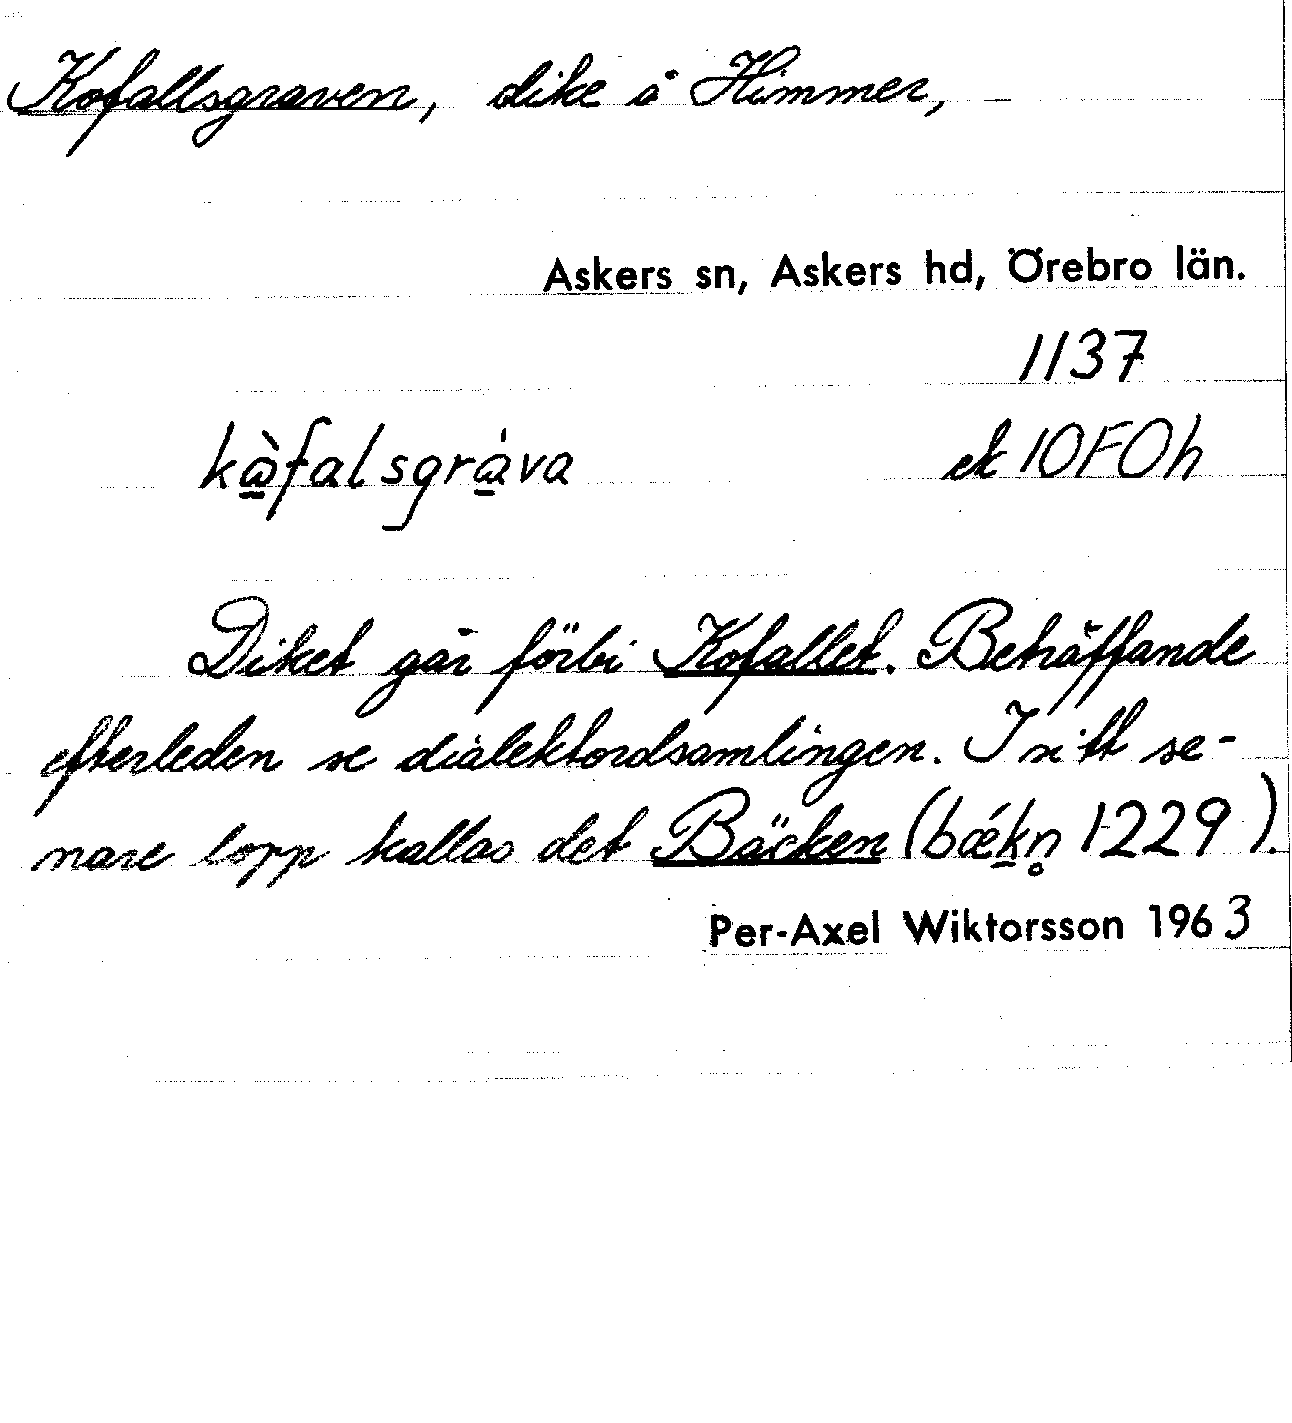 Kofallsgraven, dike å Himmer,
Askers sn, Askers hd, Örebro län.
1137
kὼfalsgrά̱va ek 10F0h
Diket går förbi Kofallet. Beträffande
efterleden se dialektordsamlingen. I sitt se-
nare lopp kallas det Bäcken (bǽk̠n̥ 1229).
Per-Axel Wiktorsson 1963